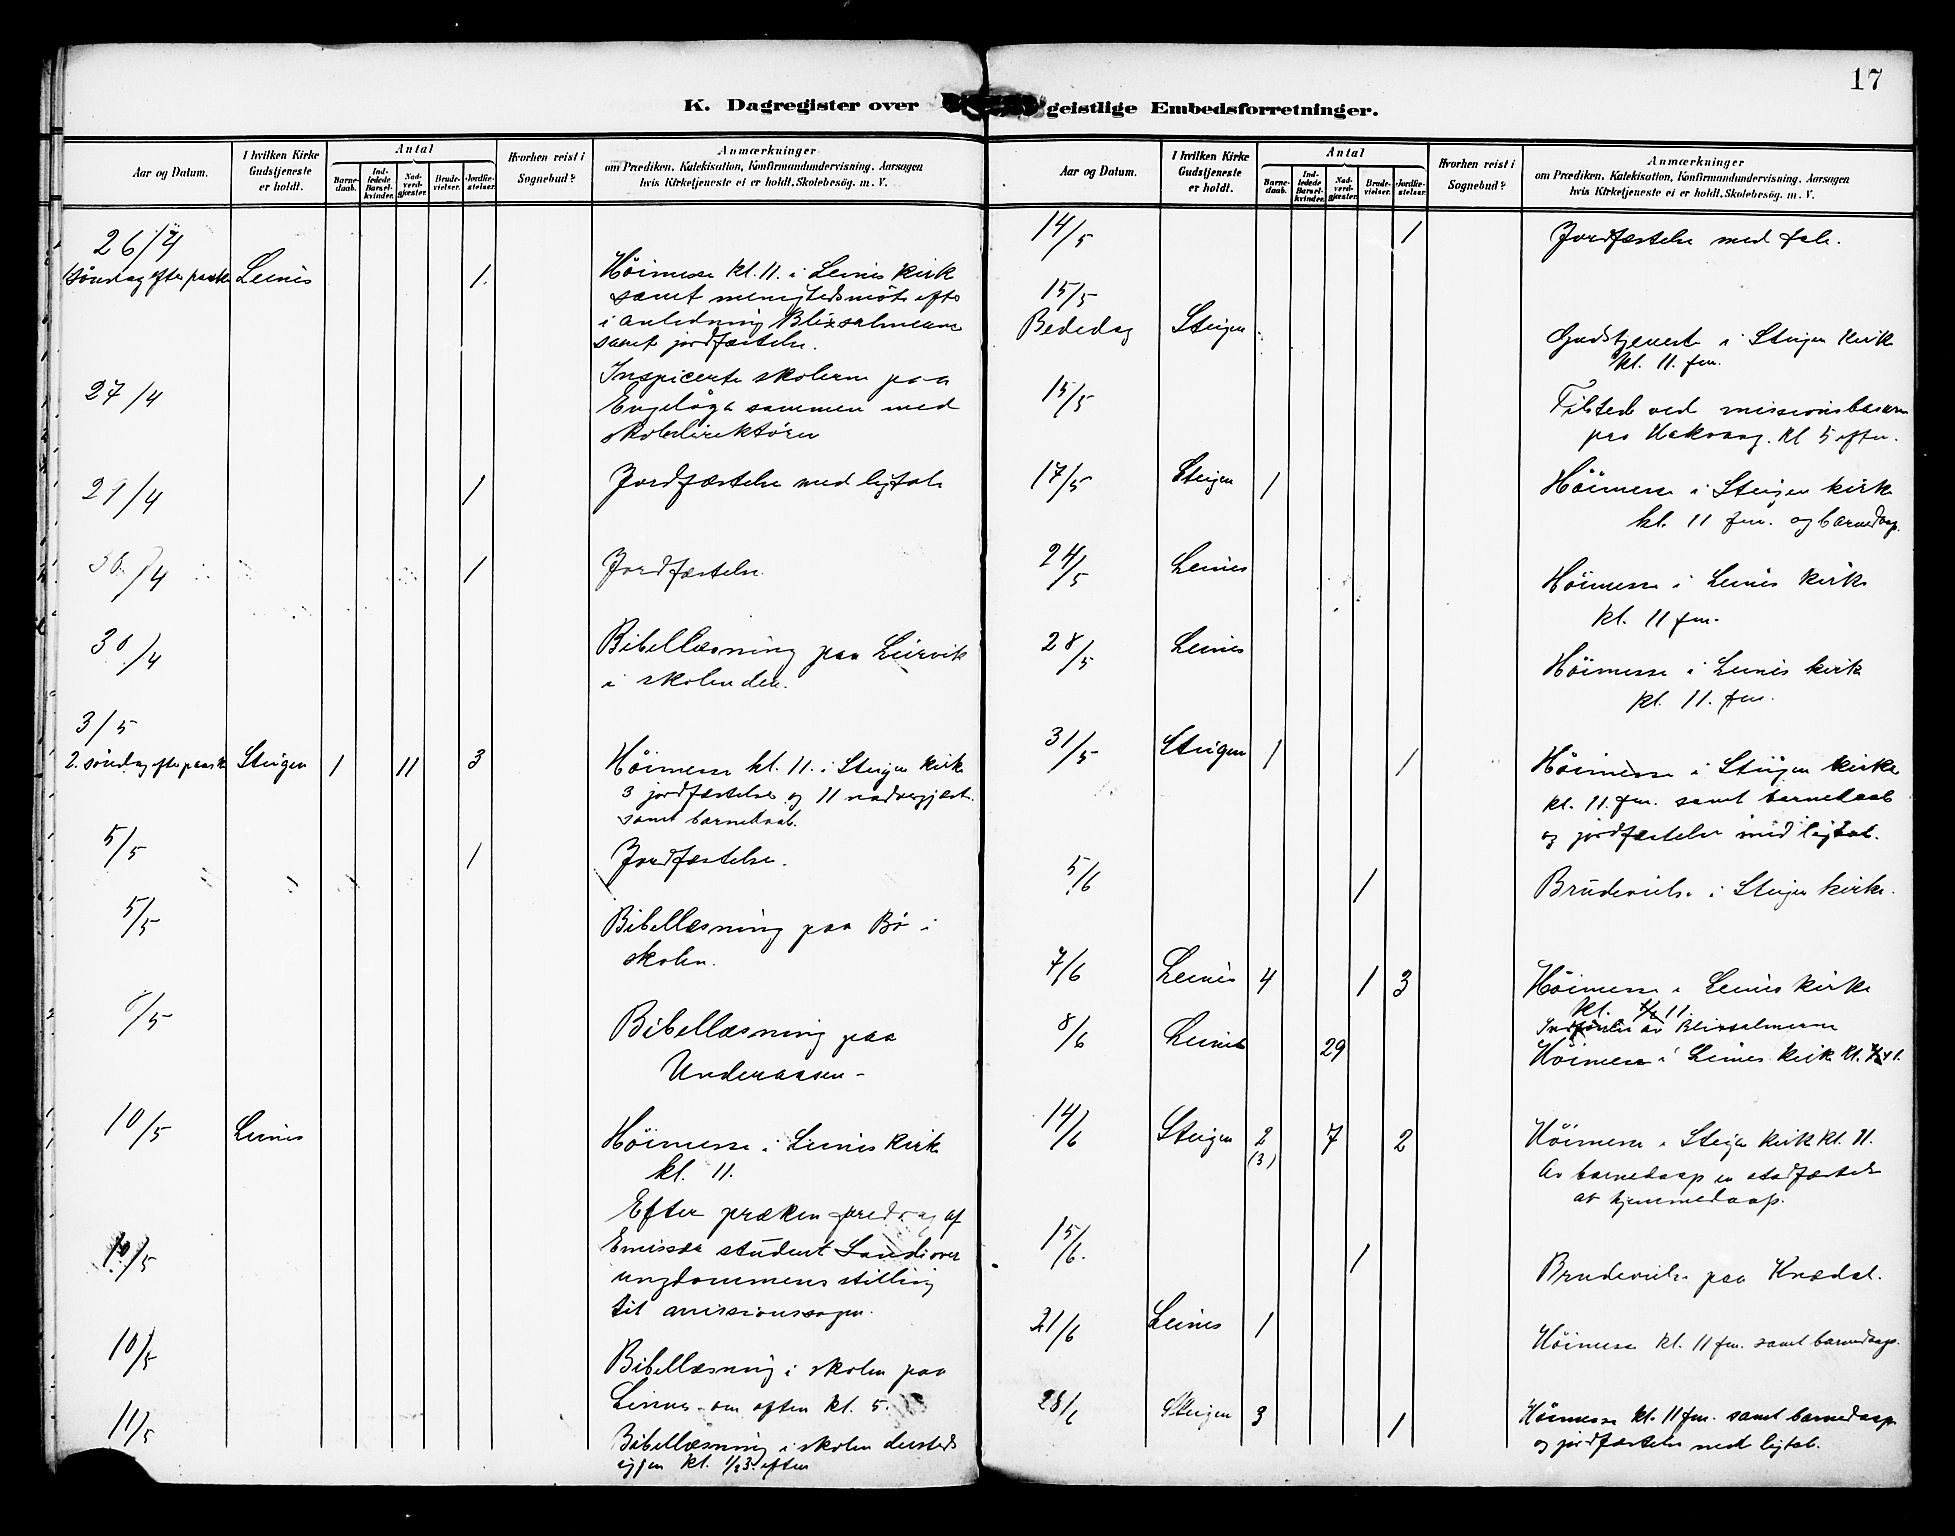 17
K. Dagregister over geistlige Embedsforretninger.
Aar og Datum.
I hvilken Kirke Gudstjeneste er holdt.
Antal
Barnedaab.
Indledede Barselkvinder.
Nadverdgjester.
Brudevielser.
Jordfæstelser.
Hvorhen reist i Sognebud?
Anmærkninger
om Prædiken, Katekisation, Konfirmandundervisning, Aarsagen
hvis Kirketjeneste ei er holdt, Skolebesøg. m. V.
26/4
1 Søndag efter paaske Leines 1. Høimesse kl. 11. i Leines kirk
samt menighedsmøte efto
i anledning Blixsalmerne
samt jordfæstelse.
27/4 Inspicerte skolerne paa
Engeløya sammen med
skoledirektøren
29/4 1 Jordfæstelse med ligtale
30/4 1 Jordfæstelse.
30/4 Bibellæsning paa Leirvik
i skolen der.
3/5
2. søndag efter paaske Steigen 1 11 3 Høimesse kl. 11. i Steigen kirke
3 jordfæstelser og 11 nadvergjæst.
samt barnedaab.
5/5 1 Jordfæstelse.
5/5 Bibellæsning paa Bø i
skolen.
6/5 Bibellæsning paa
Underaasen-
10/5 Leines Høimesse i Leines kirke
kl. 11.
Efter præken foredrag af
10/5 student over
ungdommens stilling
til missionssagen.
10/5 Bibellæsning i skolen paa
Leines om aften kl. 5.
11/5 Bibellæsning i skolen dersteds
igjen kl. 1/2 3. eften
Aar og Datum.
I hvilken Kirke Gudstjeneste er holdt.
Antal
Barnedaab.
Indledede Barselkvinder.
Nadverdgjester.
Brudevielser.
Jordfæstelser.
Hvorhen reist i Sognebud?
Anmærkninger
om Prædiken, Katekisation, Konfirmandundervisning, Aarsagen
hvis Kirketjeneste ei er holdt, Skolebesøg. m. V.
14/5 1 Jordfæstelse med tale.
15/5
Bededag Steigen Gudstjeneste i Steigen kirk
kl. 11. fm.
15/5 Tilstede ved missionsbasaren
paa Hakvaag. kl 5 eftm.
17/5 Steigen 1 Höimesse i Steigen kirke
kl. 11 fm. og barnedaap.
24/5 Leines Höimesse i Leines kirke
kl. 11 fm.
28/5 Leines Höimesse i Leines kirk
kl. 11. fm.
31/5 Steigen 1 1 Höimesse i Steigen kirke
kl. 11. fm. samt barnedaab
og jordfæstelse med ligtal.
5/6 1 Brudevielse i Steigen kirke.
7/6 Leines 4 1 3 Höimesse i Leines kirke
kl. 11.
av Blixsalmerne
8/6 Leines 29 Höimesse i Leines kirk kl. 11.
14/6 Steigen 2 7 2 Höimesse i Steigen kirk kl. 11.
(3) Av barnedaap en stadfæstelse
av hjemmedaap.
15/6. 1 Brudevielse paa
21/6 Leines 1 Höimesse kl. 11 fm. samt barnedaap.
28/6 Steigen 3 1 Höimesse kl. 11 fm. samt barnedaap
og jordfæstelse med ligtal.